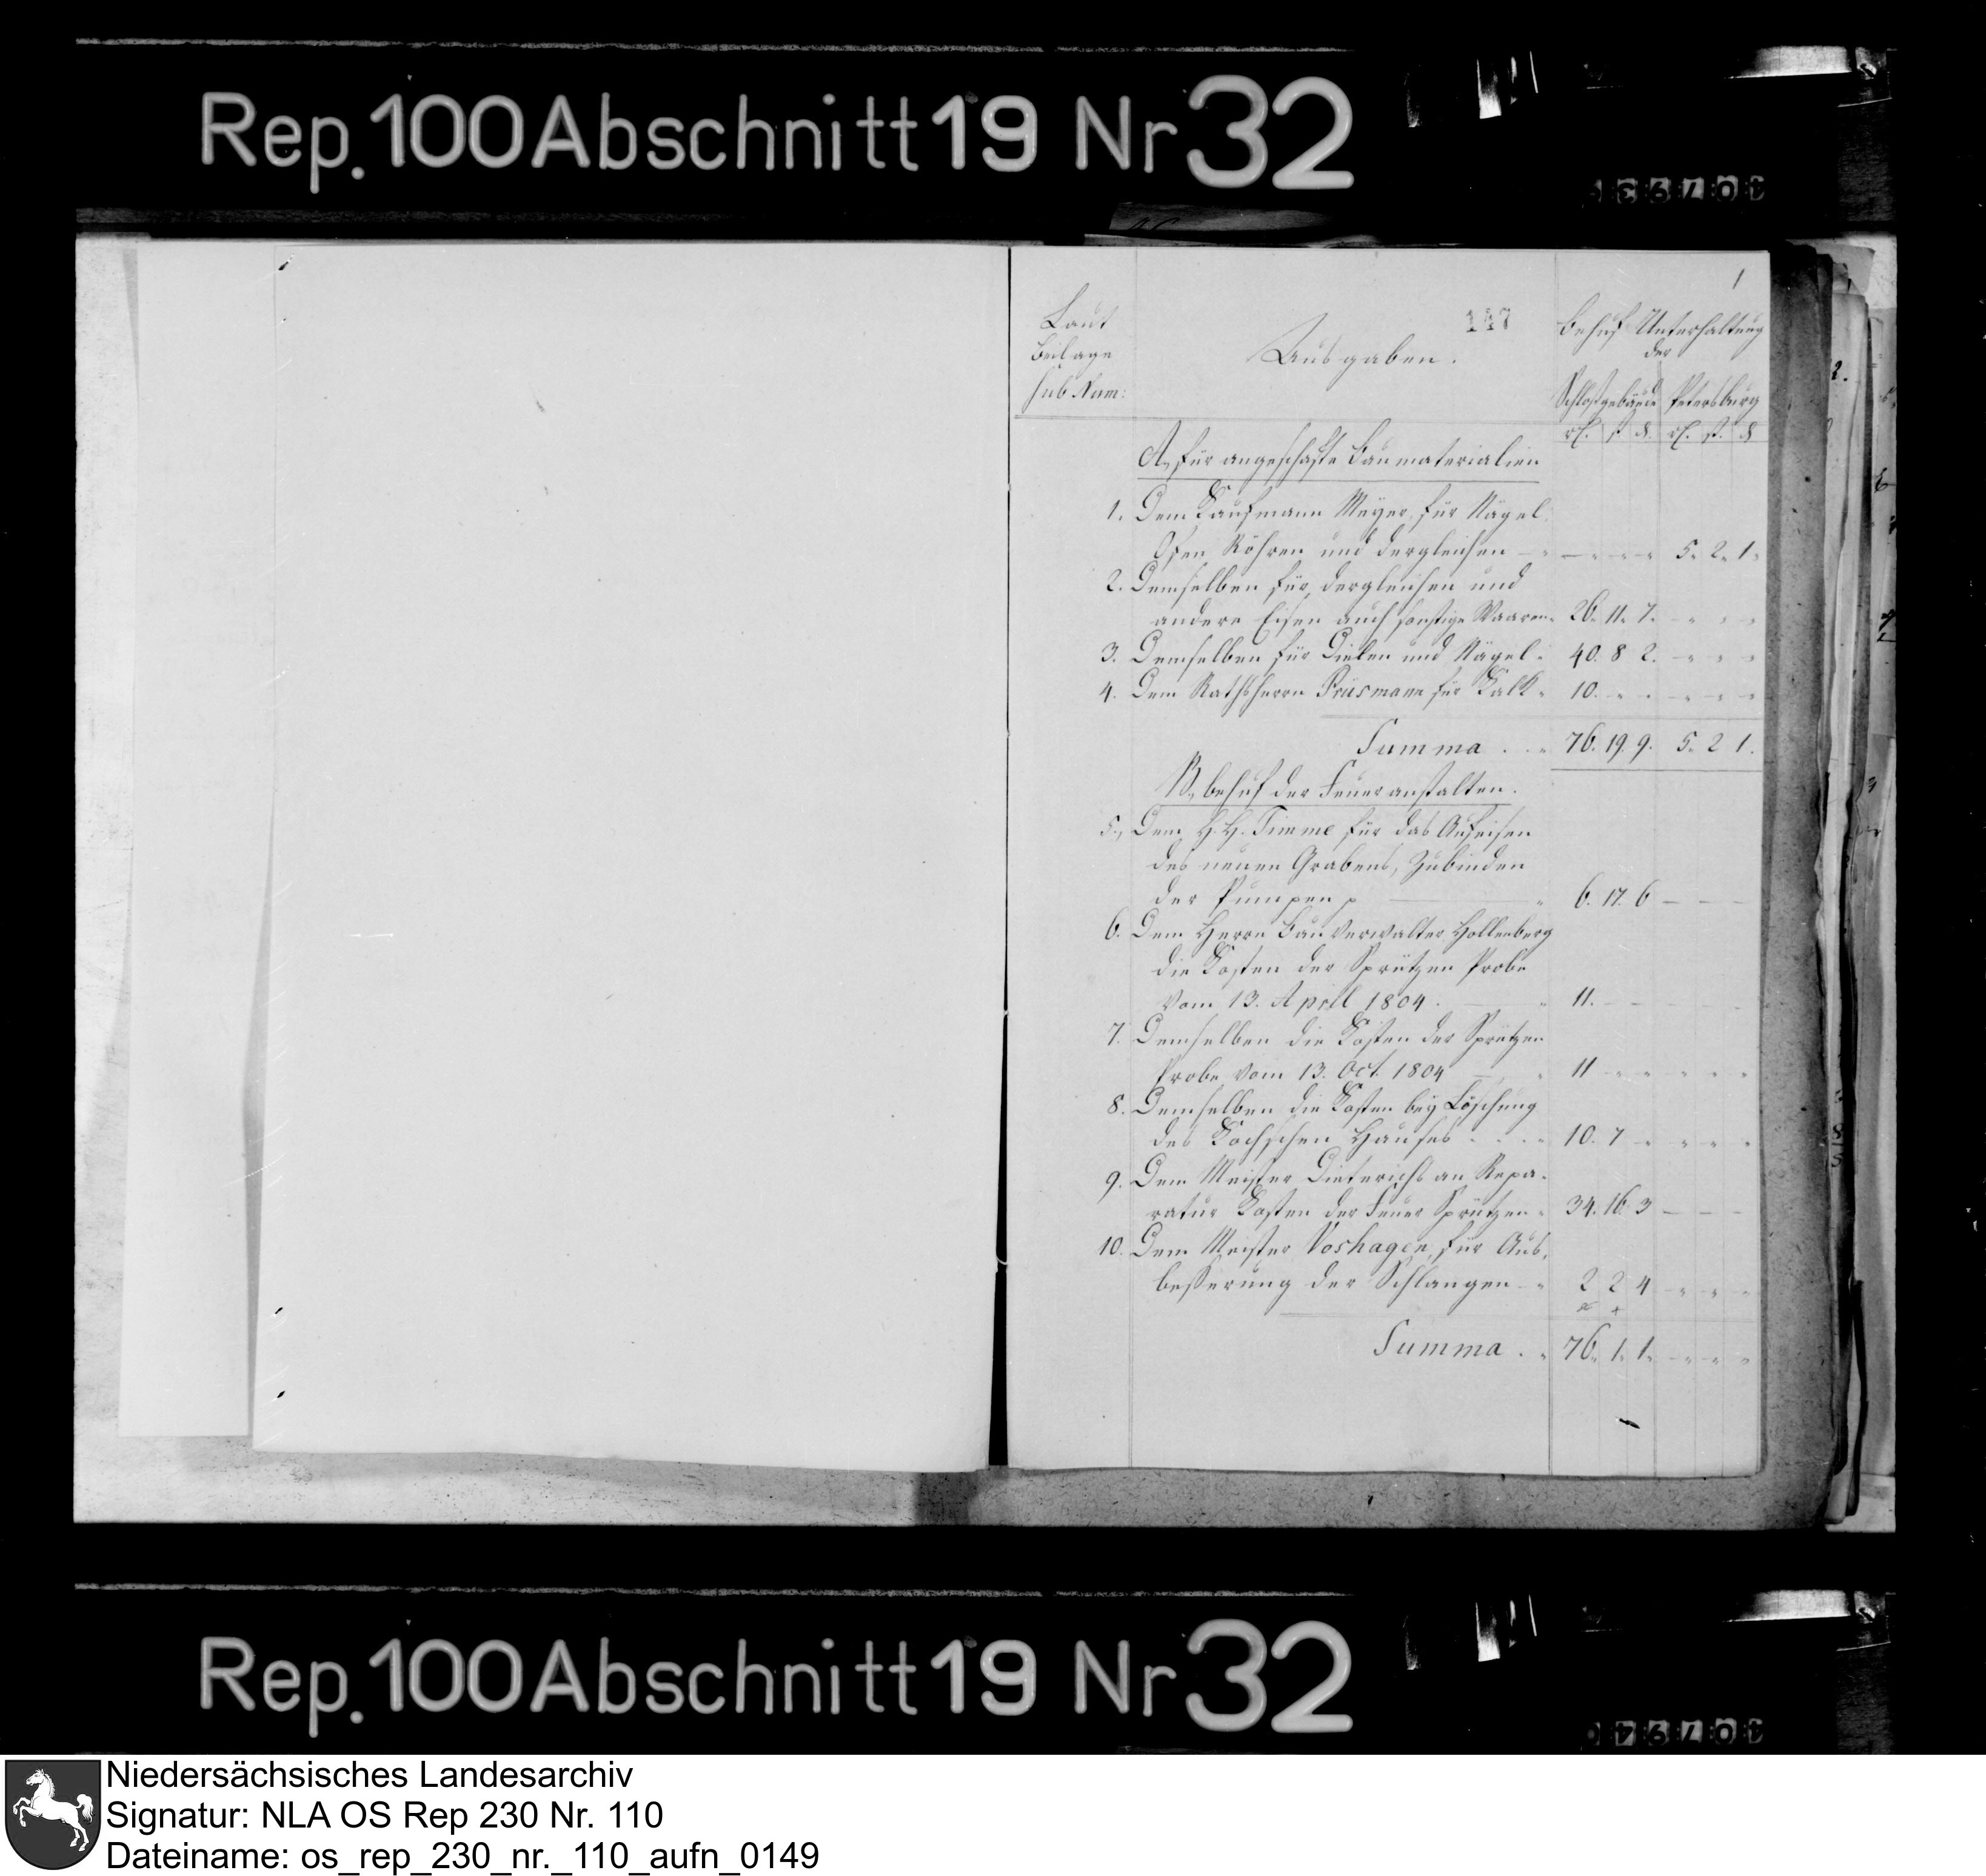 Rep. 100 Abschnitt 19 Nr 32
1
147
Laut
Beilage
sub Num:
Ausgaben.
behuf Unterhaltung
der
Schloßgebäude Petersburg
rl. ß. d. rl. ß. d
A, für angeschafte Baumaterialien
1. Dem Kaufmann Meyer für Nägel
Ofen Röhren und dergleichen — 5. 2. 1.
2. Demselben für dergleichen und
andere Eisen auch sonstige Waaren 26. 11. 7.
3. Demselben für Dielen und Nägel 40. 8 2.
4. Dem Rathsherrn Prüsmann für Kalk 10.
Summa . . 76. 19. 9. 5. 2 1.
B, behuf der Feueranstalten.
5., Dem H. H. Timme für das Aufeisen
des neuen Grabens, Zubinden
der Pumpen p 6. 17. 6 — — —
6. Dem Herrn Bauverwalter Hollenberg
die Kosten der Sprützen Probe
vom 13. April 1804. 11.
7. Demselben die Kosten der Sprützen
Probe vom 13. Oct. 1804 11
8. Demselben die Kosten bey Löschung
des Kochschen Hauses . . . . 10. 7
9. Dem Meister Dieterichs an Repa-
ratur Kosten der Feuer Sprützen 34. 16. 3 — — —
10. Dem Meister Voshagen, für Aus-
besserung der Schlangen 2 2 4
Summa . 76. 1. 1.
Rep. 100 Abschnitt 19 Nr 32
Niedersächsisches Landesarchiv
Signatur: NLA OS Rep 230 Nr. 110
Dateiname: os_rep_230_nr._110_aufn_0149